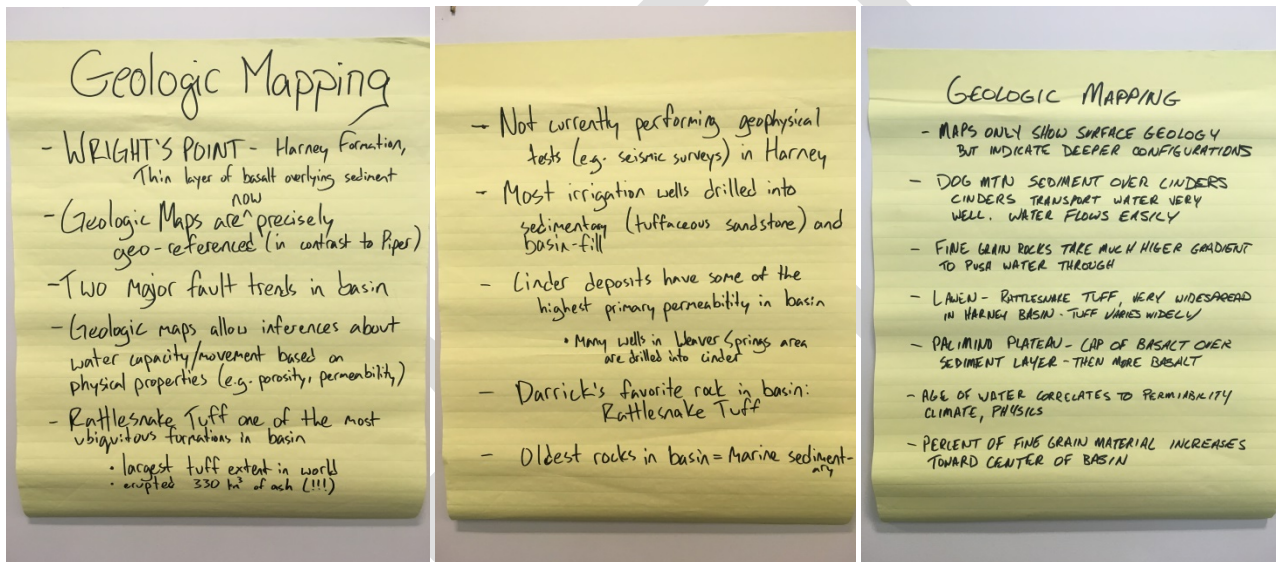 Geologic Mapping
- WRIGHT'S POINT - Harney Formation,
Thin layer of basalt overlying sediment
now
- Geologic Maps are ^ precisely
geo-referenced (in contrast to Piper)
- Two major fault trends in basin
- Geologic maps allow inferences about
water capacity/movement based on
physical properties (e.g. porosity, permeability)
- Rattlesnake Tuff one of the most
ubiquitous formations in basin
• largest tuff extent in world
• erupted 330 km³ of ash (!!!)
- Not currently performing geophysical
tests (e.g. seismic surveys) in Harney
- Most irrigation wells drilled into
sedimentary (tuffaceous sandstone) and
basin-fill
- Cinder deposits have some of the
highest primary permeability in basin
• Many wells in Weaver Springs area
are drilled into cinder
- Darrick's favorite rock in basin:
Rattlesnake Tuff
- Oldest rocks in basin = Marine sediment-
ary
GEOLOGIC MAPPING
- MAPS ONLY SHOW SURFACE GEOLOGY
BUT INDICATE DEEPER CONFIGURATIONS
- DOG MTN SEDIMENT OVER CINDERS
CINDERS TRANSPORT WATER VERY
WELL. WATER FLOWS EASILY
- FINE GRAIN ROCKS TAKE MUCH HIGER GRADIENT
TO PUSH WATER THROUGH
- LAVEN - RATTLESNAKE TUFF, VERY WIDESPREAD
IN HARNEY BASIN - TUFF VARIES WIDELY
- PALIMINO PLATEAU - CAP OF BASALT OVER
SEDIMENT LAYER - THEN MORE BASALT
- AGE OF WATER CORRELATES TO PERMIABILITY
CLIMATE, PHYSICS
- PERCENT OF FINE GRAIN MATERIAL INCREASES
TOWARD CENTER OF BASIN